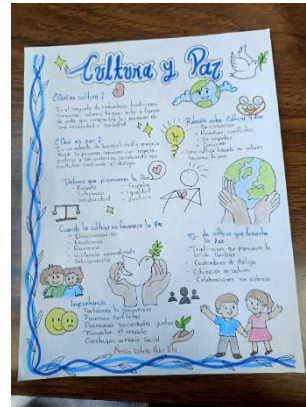 Cultura y Paz
¿Qué es cultura?
Es el conjunto de costumbres, tradiciones,
creencias, valores, lengua, arte y forma
de vida que comparten las personas de
una comunidad o sociedad
¿Qué es paz?
Es un estado de tranquilidad y armonía
donde las personas conviven con respeto,
justicia y sin violencia, resolviendo sus
conflictos mediante el diálogo
Relación entre Cultura y Paz
- Se comunican
- Resuelven conflictos
- Se respetan
- Conviven
Una cultura basada en valores
favorece la paz
Valores que promueven la Paz
- Respeto
- Tolerancia
- Solidaridad
- Empatía
- Igualdad
- Justicia
Cuando la cultura no favorece la Paz
- Discriminación
- Machismo
- Racismo
- Violencia normalizada
- Intolerancia
Ej. de cultura que fomenta
la Paz
- Tradiciones que promueven la
unión familiar
- Costumbres de diálogo
- Educación en valores
- Celebraciones sin violencia
Importancia
Fortalece la convivencia
Previene conflictos
Promueve sociedades justas
Fomentan el respeto
Construye armonía Social